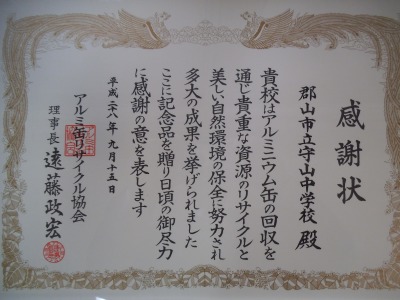 感謝状
郡山市立守山中学校 殿
貴校はアルミニウム缶の回収を
通じ貴重な資源のリサイクルと
美しい自然環境の保全に努力され
多大の成果を挙げられました
ここに記念品を贈り日頃の御尽力
に感謝の意を表します
平成二十八年 九月十五日
アルミ缶リサイクル協会
理事長 遠藤政宏